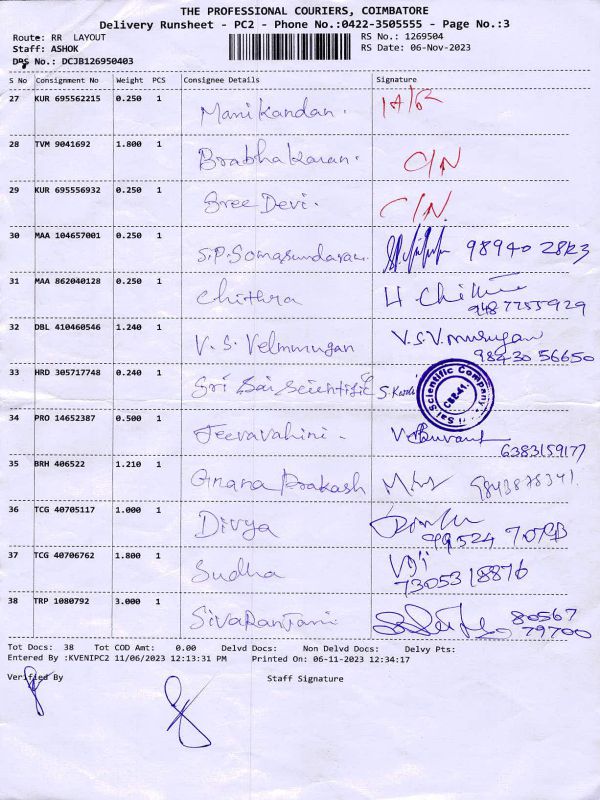 THE PROFESSIONAL COURIERS, COIMBATORE
Delivery Runsheet - PC2 - Phone No.:0422-3505555 - Page No.:3
Route: RR LAYOUT RS No.: 1269504
Staff: ASHOK RS Date: 06-Nov-2023
DRS No.: DCJB126950403
S No Consignment No Weight PCS Consignee Details Signature
27 KUR 695562215 0.250 1 Manikandan.
28 TVM 9041692 1.800 1 Brabhakaran. C/N
29 KUR 695556932 0.250 1 Sree Devi. C/N.
30 MAA 104657001 0.250 1 S.P. Somasundaran
31 MAA 862040128 0.250 1 Chithra
9487755929
32 DBL 410460546 1.240 1 V. S. Velmurugan V.S.V.murugan
98430 56650
33 HRD 305717748 0.240 1 Sri Sai Scientific
Sai Scientific Company
34 PRO 14652387 0.500 1 Jeevavahini.
6383159177
35 BRH 406522 1.210 1 Gnana Prakash 9843878341.
36 TCG 40705117 1.000 1 Divya
37 TCG 40706762 1.800 1 Sudha
7305318876
38 TRP 1080792 3.000 1 SivaRanjani 80567
79700
Tot Docs: 38 Tot COD Amt: 0.00 Delvd Docs: Non Delvd Docs: Delvy Pts:
Entered By :KVENIPC2 11/06/2023 12:13:31 PM Printed On: 06-11-2023 12:34:17
Verified By Staff Signature